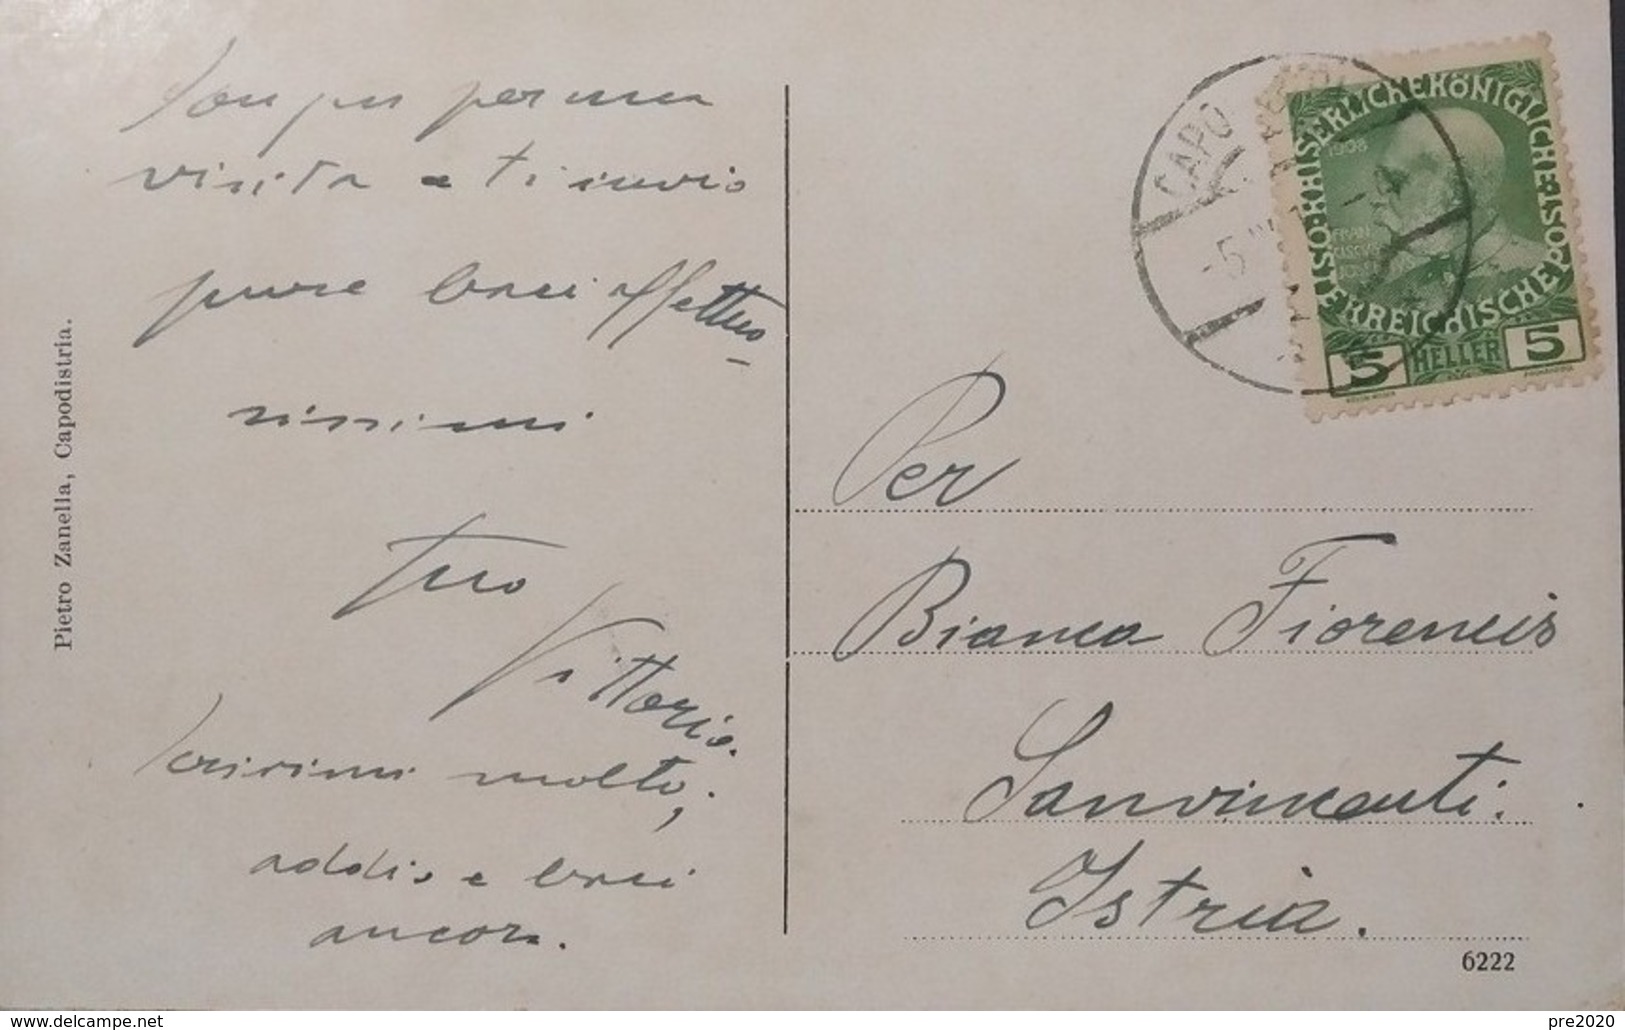 per una
visita e ti invio
pure baci affettuo-
sissimi
tuo
Vittorio.
Scrivimi molto;
addio e baci
ancora.
Pietro Zanella, Capodistria.
CAPO
5
KAISERLICHE KÖNIGLICHE ÖSTERREICHISCHE POST
1908
5 HELLER 5
Per
Bianca Fiorencis
Sanvincenti.
Istria.
6222
www.delcampe.net
pre2020